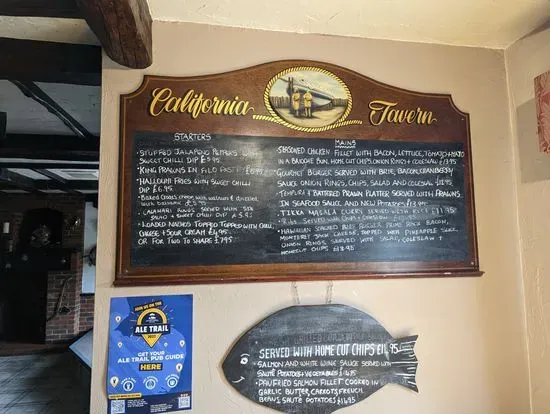 California Tavern
STARTERS
• STUFFED JALAPENO PEPPERS WITH
SWEET CHILLI DIP £5.95
• KING PRAWNS IN FILO PASTRY £6.95
• HALLOUMI FRIES WITH SWEET CHILLI
DIP £6.95
• BAKED GOATS CHEESE WITH WALNUTS & DRIZZLED
WITH
• CALAMARI RINGS SERVED WITH SIDE
SALAD & SWEET CHILLI DIP £5.95
• LOADED NACHOS TOPPED WITH CHILLI,
CHEESE + SOUR CREAM £4.95
OR FOR TWO TO SHARE £7.95
MAINS
SEASONED CHICKEN FILLET WITH BACON, LETTUCE, TOMATO + MAYO
IN A BRIOCHE BUN, HOME CUT CHIPS, ONION RINGS + COLESLAW
GOURMET BURGER SERVED WITH BRIE, BACON, CRANBERRY
SAUCE ONION RINGS, CHIPS, SALAD AND COLESLAW
• TEMPURA BATTERED PRAWN PLATTER SERVED WITH PRAWNS
IN SEAFOOD SAUCE AND NEW POTATOES
• TIKKA MASALA CURRY SERVED WITH RICE £11.95
• RIBS SERVED WITH CHIPS + COLESLAW
• HAWAIIAN STACKED BEEF BURGER, PRIME BACK BACON,
MONTEREY JACK CHEESE, TOPPED WITH PINEAPPLE SLICE
ONION RINGS, SERVED WITH SALAD, COLESLAW +
HOMECUT CHIPS £13.95
JOIN US ON THE
ALE TRAIL
GET YOUR
ALE TRAIL PUB GUIDE
HERE
SERVED WITH HOME CUT CHIPS £11.95
SALMON AND WHITE WINE SAUCE SERVED WITH
SAUTE POTATOES + VEGETABLES
• PAN FRIED SALMON FILLET COOKED IN
GARLIC BUTTER, CARROTS, FRENCH
BEANS, SAUTE POTATOES £16.95